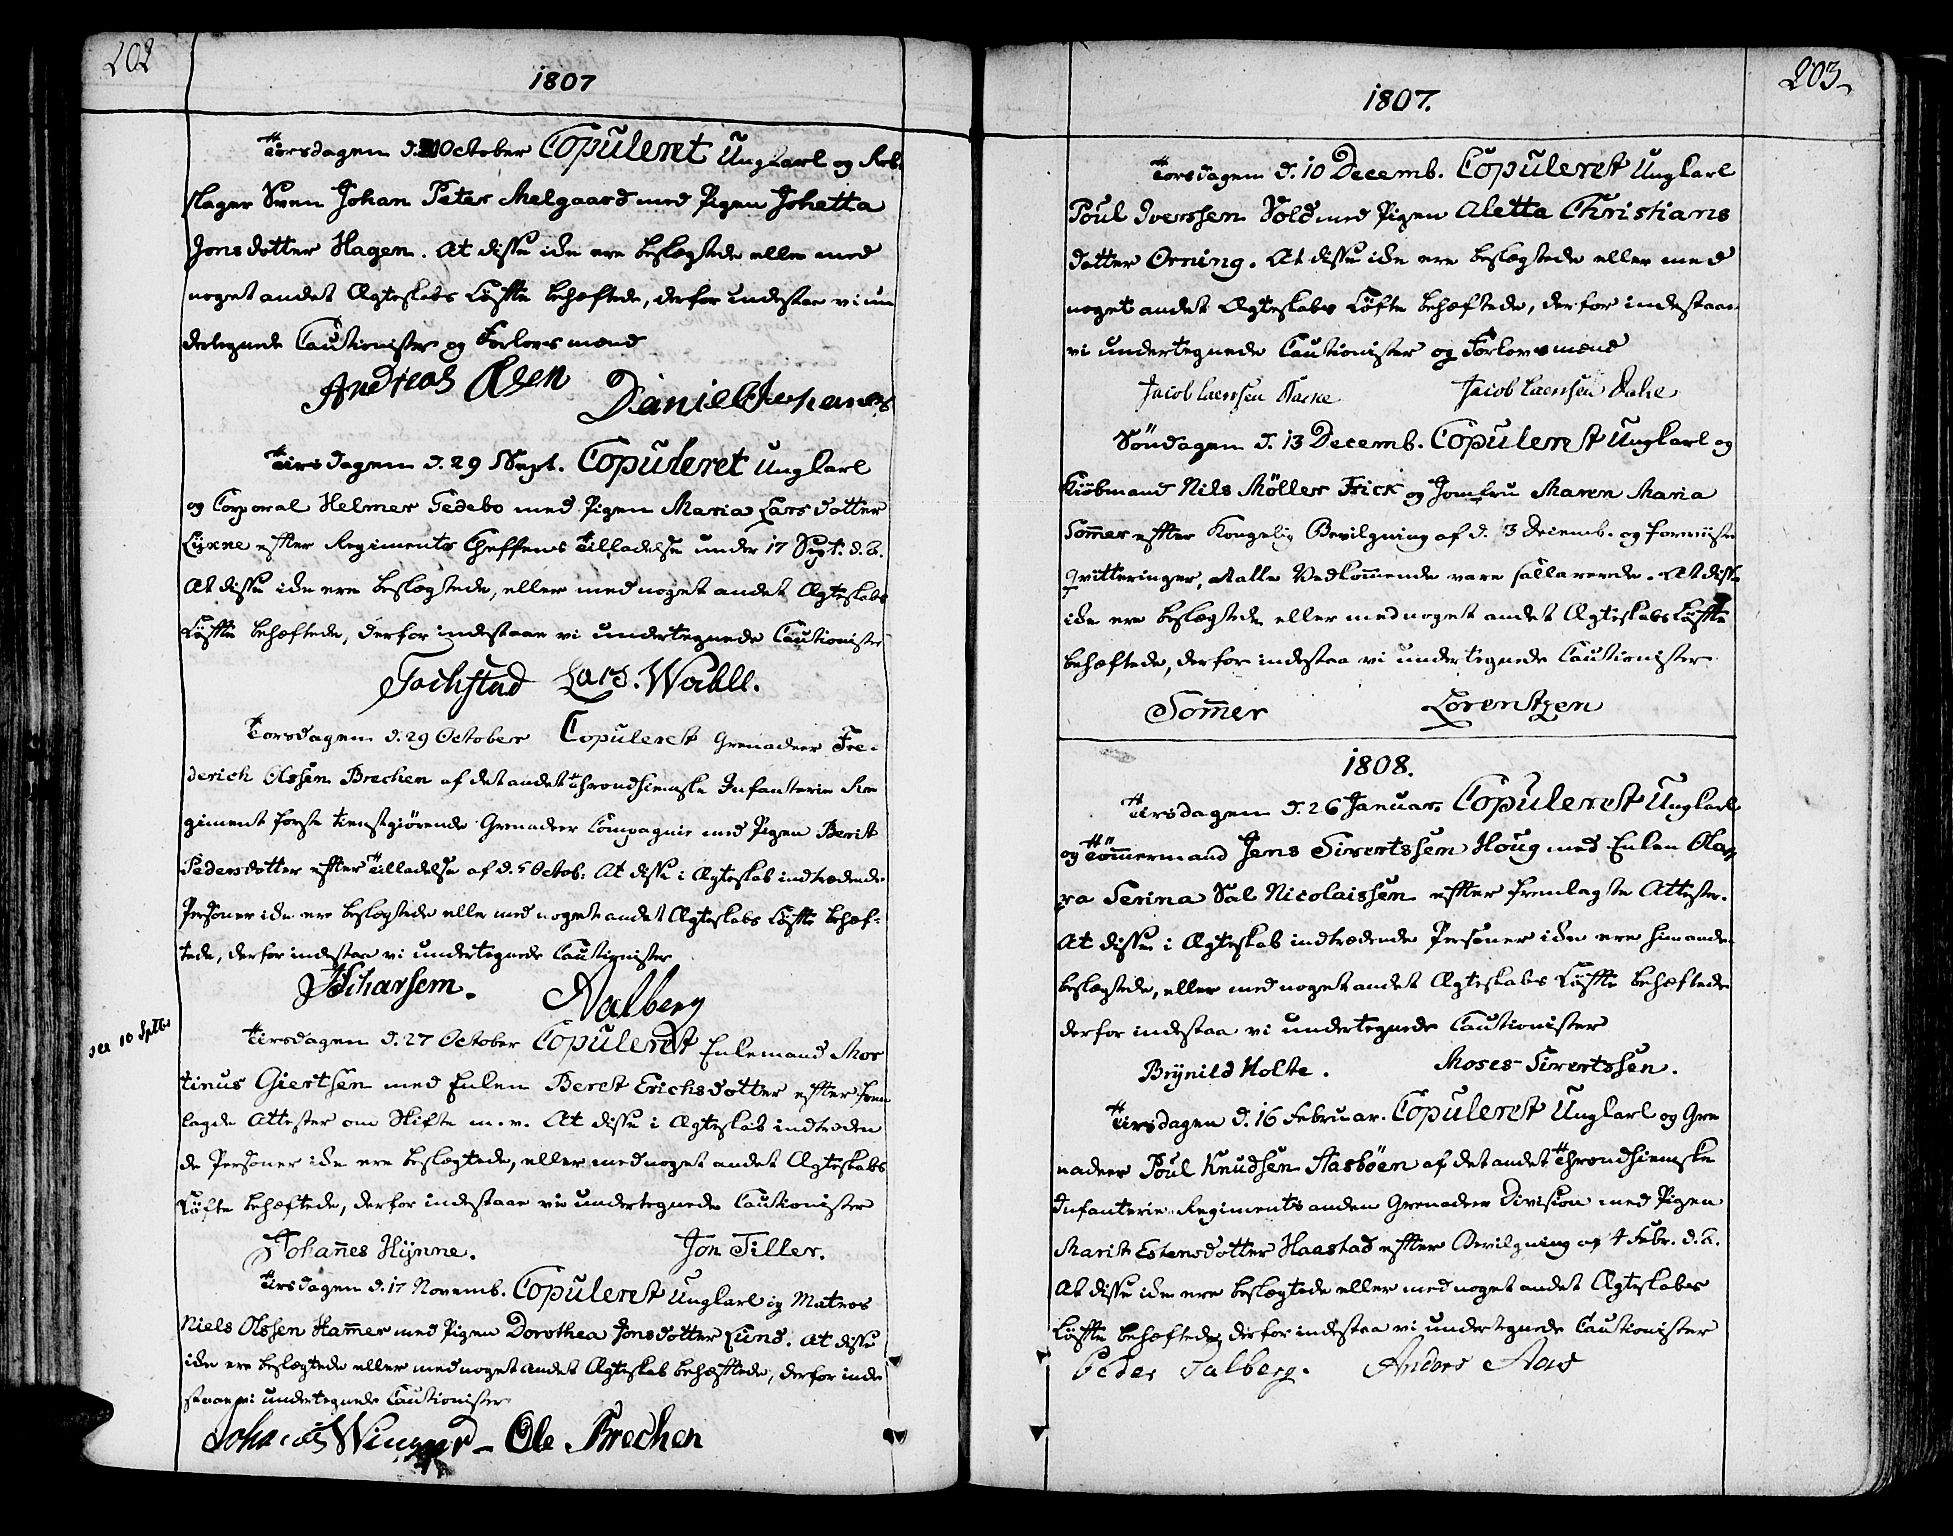 202
1807
Torsdagen d. October Copuleret Ungkarl og Reb-
slager Sven Johan Peter Melgaard med Pigen Johetta
Jonsdotter Hagen. At disse icke ere beslægtede eller med
noget andet Ægteskabs Løffte behæftede, derfor indestaae vi un
dertegnede Cautionister og Forlovsmænd
Andreas Olsen Daniel Johansen
Tirsdagen d. 29 Sept. Copuleret Ungkarl
og Corporal Helmer Tedebo med Pigen Maria Larsdotter
Lixne effter Regiments Cheffens Tilladelse under 17 Sept. d. A.
At disse icke ere beslægtede, eller med noget andet Ægteskabs
Løffte behæftede, derfor indestaae vi undertegnede Cautionister
Lars. Wabll.
Torsdagen d. 29 October Copuleret Grenadeer Fre-
derich Olssen Brechen af det andet Throndhiemske Infanterie Re
giment første tienstgiørende Grenadeer Compagnie med Pigen Berit
Pedersdotter effter Tilladelse af d. 5 Octob. At disse i Ægteskab indtrædende
Personer icke ere beslægtede elle med noget andet Ægteskabs Løffte behæf-
tede, derfor indestaa vi undertegnede Cautionister
Scharsem. Aalberg
see 10 Sptbr
Tirsdagen d. 27 October Copuleret Enkemand Mor
tinus Giertsen med Enken Beret Erichsdotter effter frem
lagde Attester om Skifte m. v. At disse i Ægteskab indtræden
de Personer icke ere beslægtede, eller med noget andet Ægteskabs
Løfte behæftede, derfor indestaae vi undertegnede Cautionister
Johañes Hynne. Jon Tiller.
Tirsdagen d. 17 Novemb. Copuleret Ungkarl og Matros
Niels Olssen Ham̃er med Pigen Dorothea Jonsdotter Lund. At disse
icke ere beslægtede eller med noget andet Ægteskab behæfftede, derfor inde
staae vi undertegnede Cautionister
Johanes Winggrd - Ole Brechen
203
1807.
Torsdagen d. 10 Decemb. Copuleret Ungkarl
Poul Iverssen Vold med Pigen Aletta Christians
dotter Orning. At disse icke ere beslægtede eller med
noget andet Ægteskabs Løfte behæftede, derfor indestaae
vi undertegnede Cautionister og Forlovsmænd
Jacob Laerssen Jacob Laerssen
Søndagen d. 13 Decemb. Copuleret Ungkarl og
Kiøbmand Nils Møller Frick og Jomfru Maren Maria
Som̃er effter Kongelig Bevilgning af d. 3 Decemb. og foreviiste
Qvitteringer, at alle Vedkom̃ende vare sallarerede. At disse
icke ere beslægtede eller med noget andet Ægteskabs Løffte
behæftede, derfor indestaa vi undertegnede Cautionister
Som̃er Lorentzen
1808.
Tirsdagen d. 26 Januar. Copuleret Ungkarl
og Tøm̃ermand Jens Sivertssen Houg med Enken Olav
va Serina Sal Nicolaissen effter fremlagte Attester.
At disse i Ægteskab indtrædende Personer icke ere hinanden
beslægtede, eller med noget andet Ægteskabs Løffte behæftede
derfor indestaa vi undertegnede Cautionister
Brynild Holte. Moses Sivertssen.
Tirsdagen d. 16 Februar. Copuleret Ungkarl og Gre
nadeer Poul Knudsen Aasbøen af det andet Throndhiemske
Infanterie Regiments anden Grenadeer Division med Pigen
Marit Estensdotter Haastad effter Bevilgning af 4 Febr. d. A.
At disse icke ere beslægtede eller med noget andet Ægteskabs
Løffte behæftede, derfor indestaa vi undertegnede Cautionister
Peder Salberg. Anders Aas